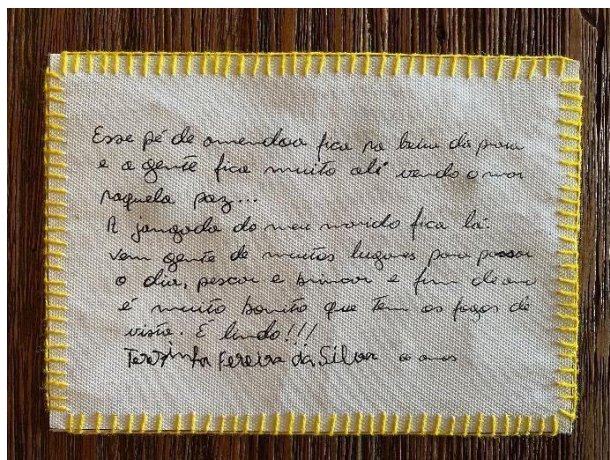 Esse pé de amendoa fica na beira da praia
e a gente fica muito ali vendo o mar
naquela paz...
A jangada do meu marido fica lá.
Vem gente de muitos lugares para passar
o dia, pescar e brincar e fim de ano
é muito bonito que tem os fogos de
vista. É lindo!!!
Terezinha Fereira da Silva 60 anos